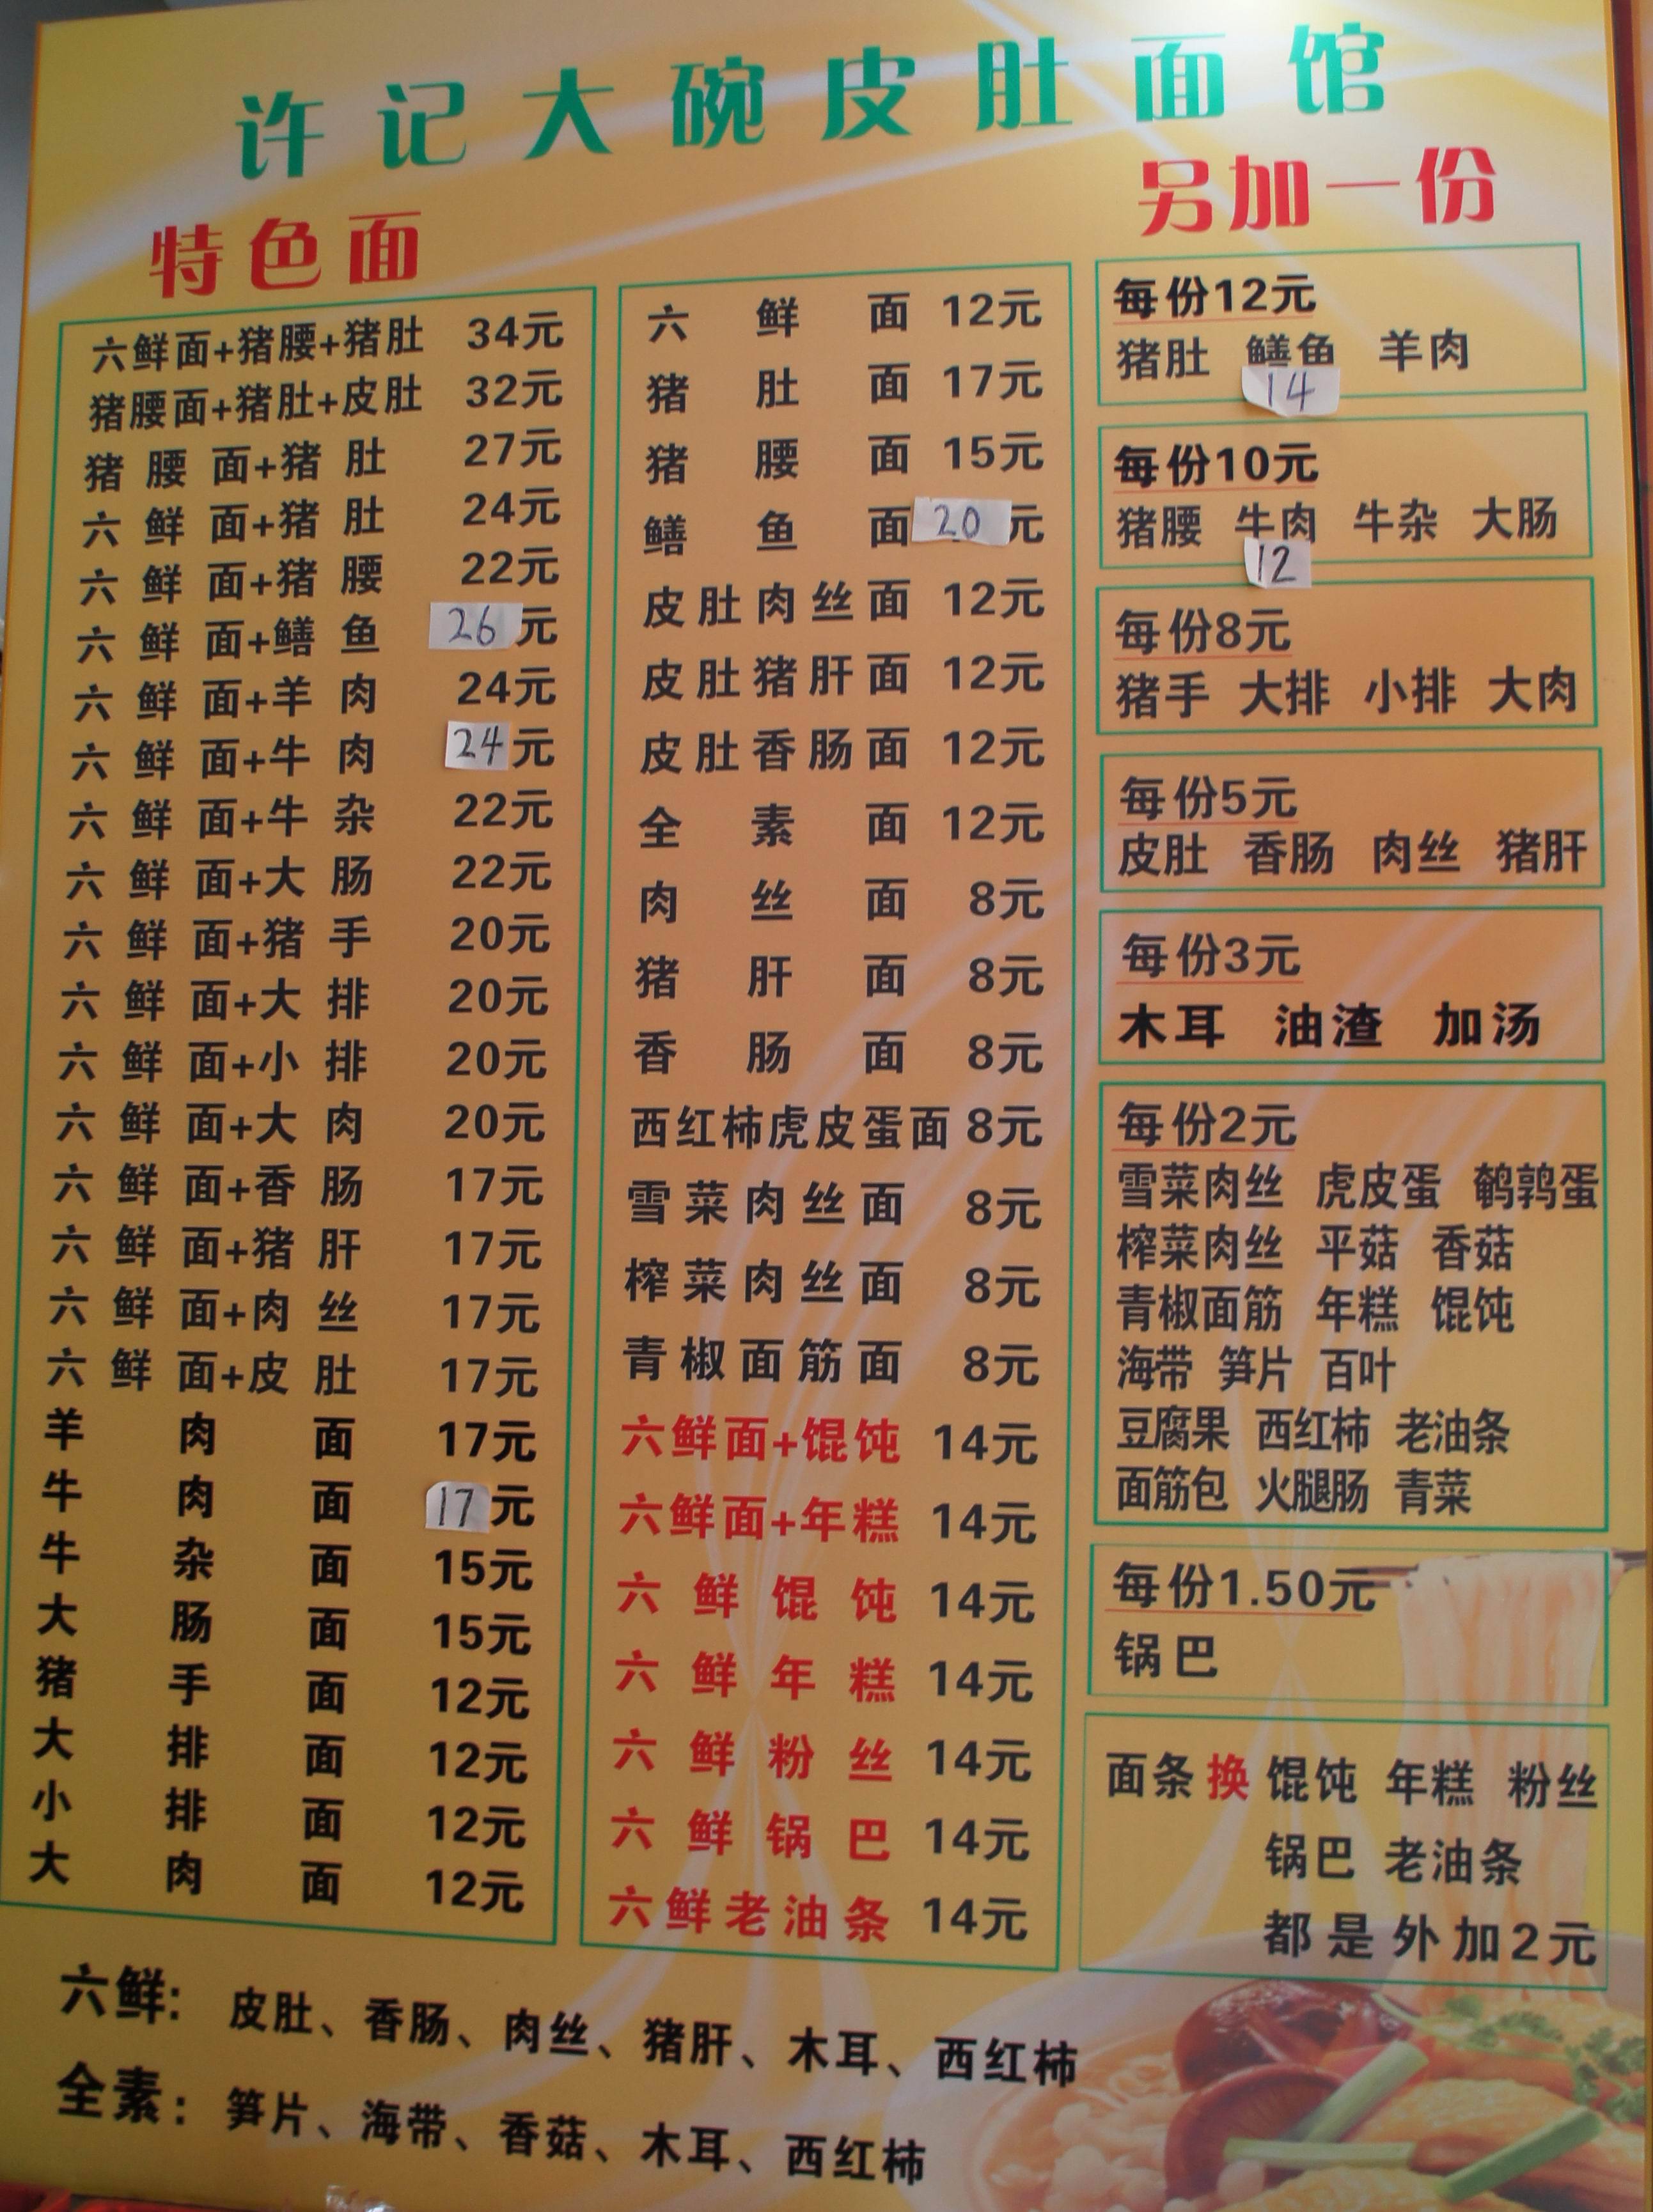 许记大碗皮肚面馆
特色面
六鲜面+猪腰+猪肚 34元
猪腰面+猪肚+皮肚 32元
猪腰面+猪肚 27元
六鲜面+猪肚 24元
六鲜面+猪腰 22元
六鲜面+鳝鱼 26元
六鲜面+羊肉 24元
六鲜面+牛肉 24元
六鲜面+牛杂 22元
六鲜面+大肠 22元
六鲜面+猪手 20元
六鲜面+大排 20元
六鲜面+小排 20元
六鲜面+大肉 20元
六鲜面+香肠 17元
六鲜面+猪肝 17元
六鲜面+肉丝 17元
六鲜面+皮肚 17元
羊肉面 17元
牛肉面 17元
牛杂面 15元
大肠面 15元
猪手面 12元
大排面 12元
小排面 12元
大肉面 12元
六鲜面 12元
猪肚面 17元
猪腰面 15元
鳝鱼面 20元
皮肚肉丝面 12元
皮肚猪肝面 12元
皮肚香肠面 12元
全素面 12元
肉丝面 8元
猪肝面 8元
香肠面 8元
西红柿虎皮蛋面 8元
雪菜肉丝面 8元
榨菜肉丝面 8元
青椒面筋面 8元
六鲜面+馄饨 14元
六鲜面+年糕 14元
六鲜馄饨 14元
六鲜年糕 14元
六鲜粉丝 14元
六鲜锅巴 14元
六鲜老油条 14元
另加一份
每份12元
猪肚 鳝鱼 羊肉
14
每份10元
猪腰 牛肉 牛杂 大肠
12
每份8元
猪手 大排 小排 大肉
每份5元
皮肚 香肠 肉丝 猪肝
每份3元
木耳 油渣 加汤
每份2元
雪菜肉丝 虎皮蛋 鹌鹑蛋
榨菜肉丝 平菇 香菇
青椒面筋 年糕 馄饨
海带 笋片 百叶
豆腐果 西红柿 老油条
面筋包 火腿肠 青菜
每份1.50元
锅巴
面条换馄饨 年糕 粉丝
锅巴 老油条
都是外加2元
六鲜: 皮肚、香肠、肉丝、猪肝、木耳、西红柿
全素: 笋片、海带、香菇、木耳、西红柿